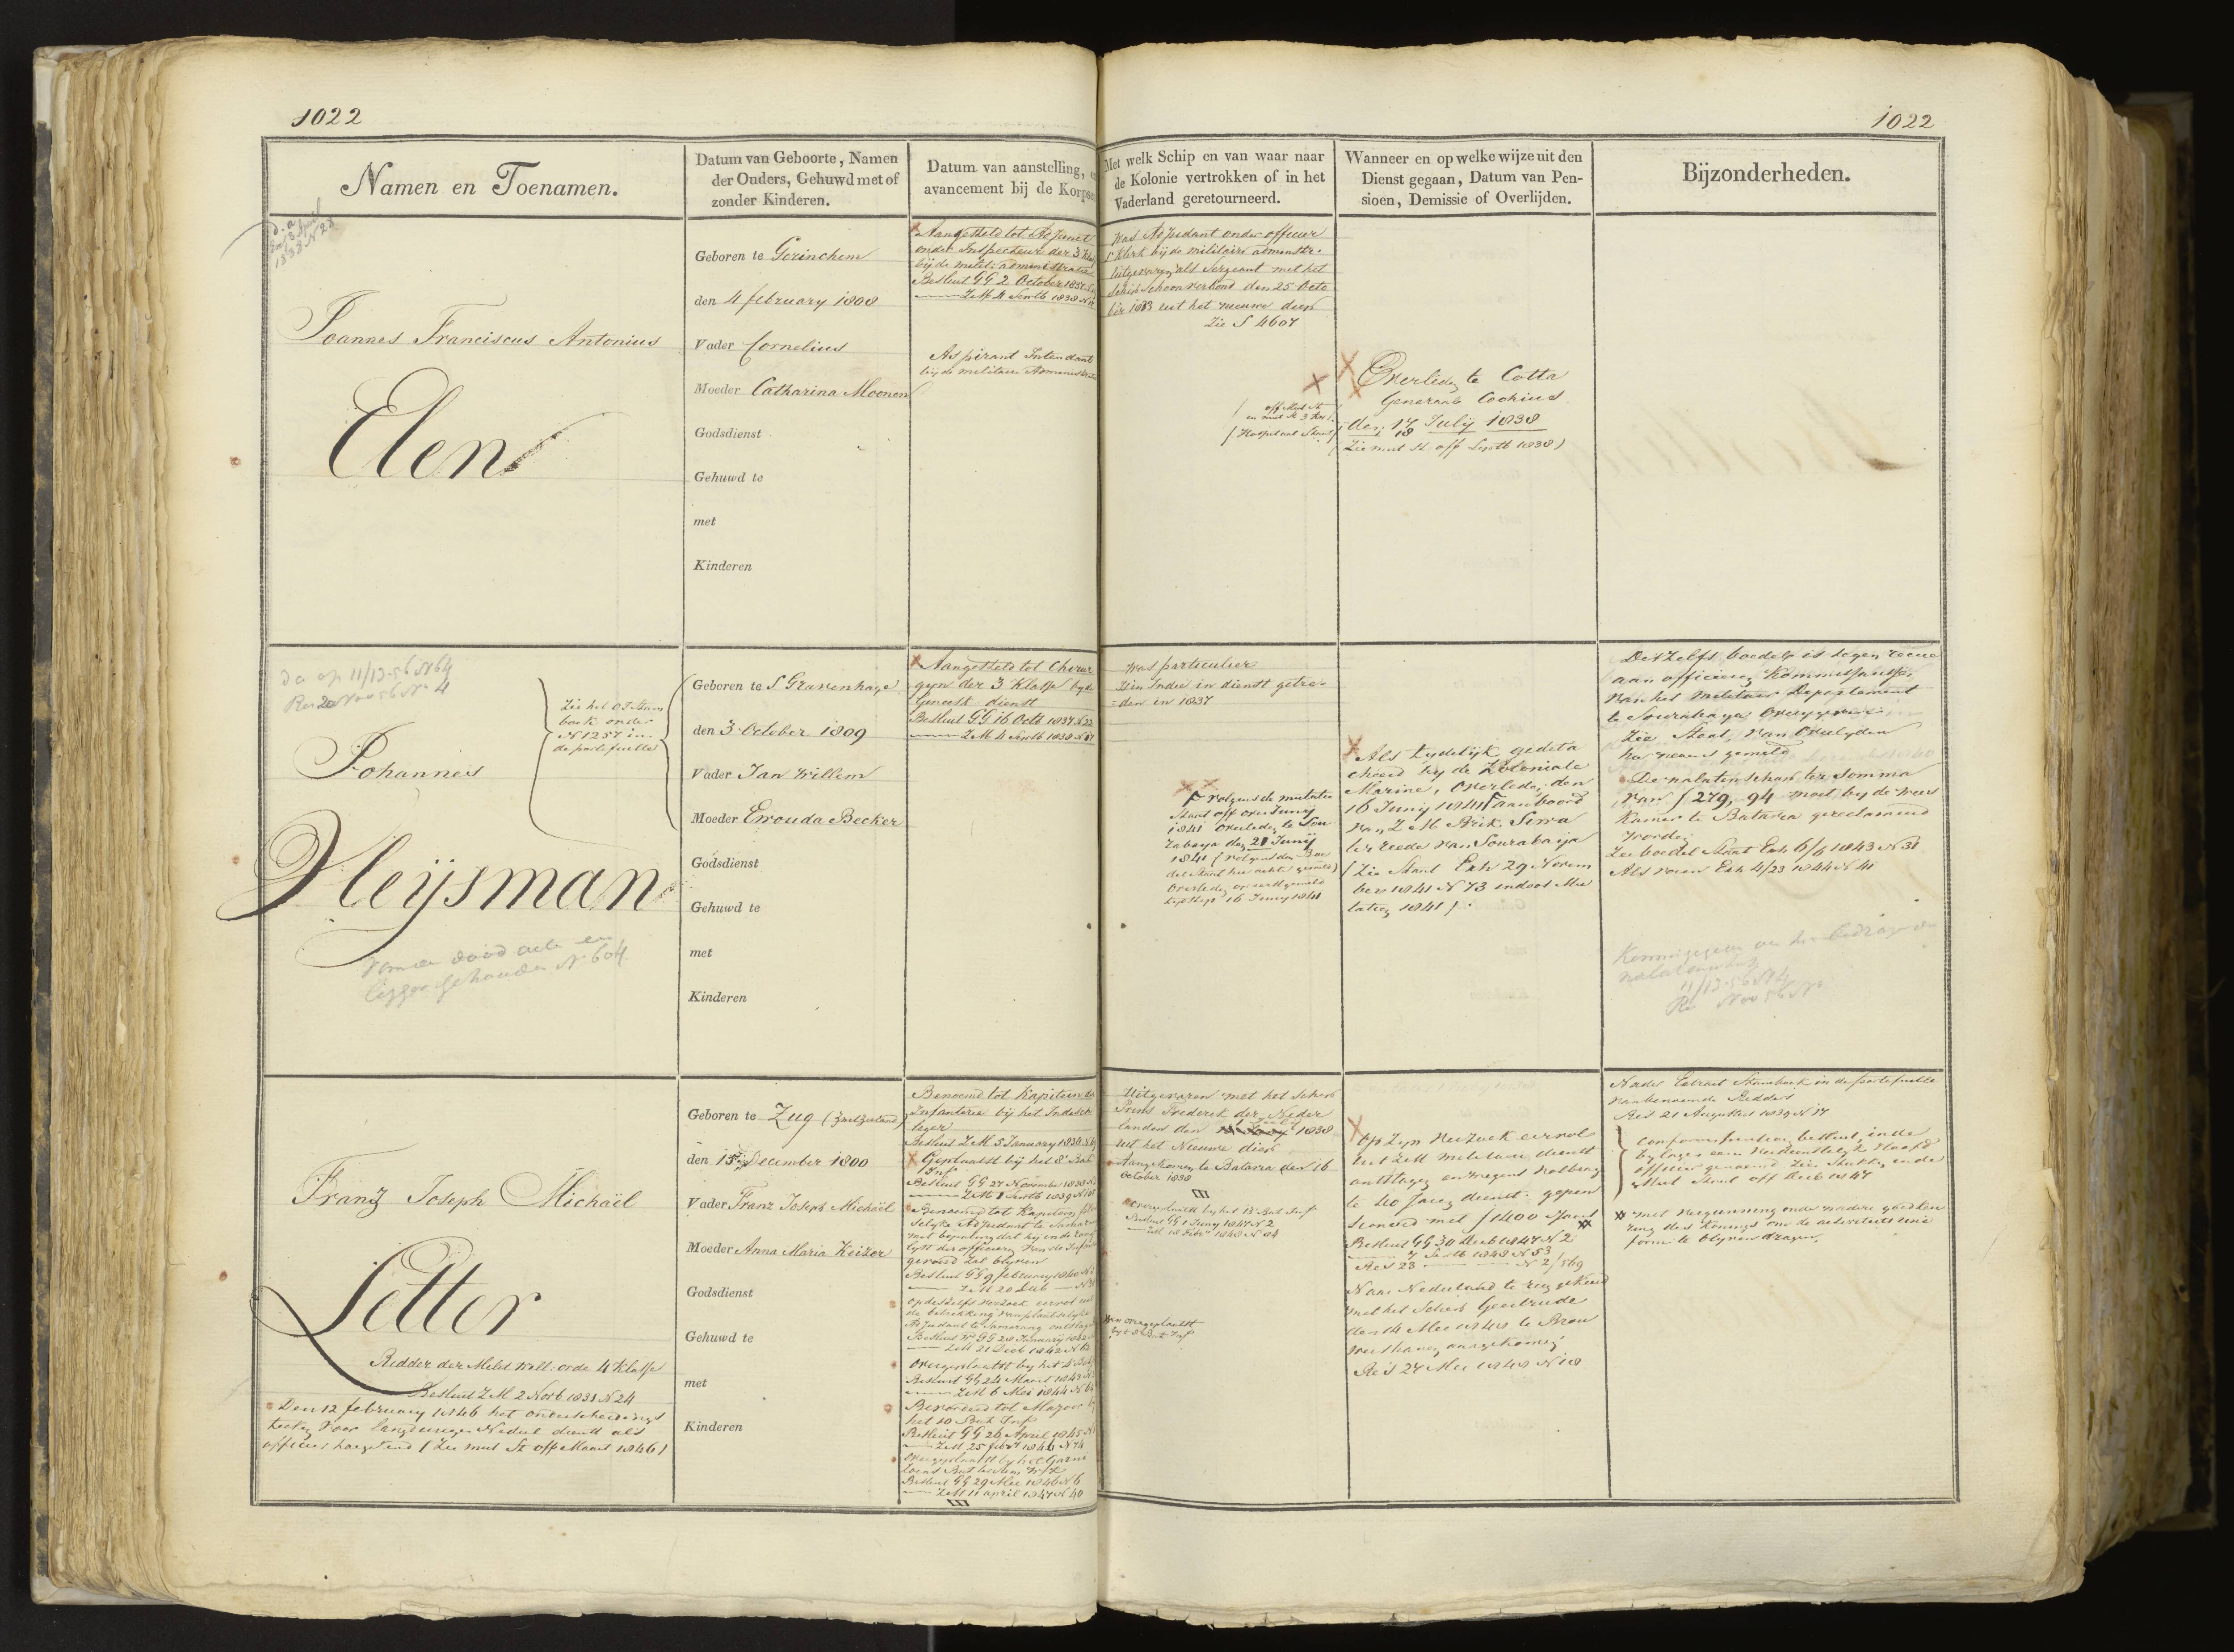 1022
1022
Namen en Toenamen.
Datum van Geboorte, Namen
der Ouders, Gehuwd met of
zonder Kinderen.
Datum van aanstelling,
avancement bij de Korps
Met welk Schip en van waar naar
de Kolonie vertrokken of in het
Vaderland geretourneerd.
Wanneer en op welke wijze uit den
Dienst gegaan, Datum van Pen-
sioen, Demissie of Overlijden.
Bijzonderheden.
1838 N 28
Joannes Franciscus Antonius
Elen
Geboren te Gorinchem
den 4 february 1808
Vader Cornelius
Moeder Catharina Moonen
Godsdienst
Gehuwd te
met
Kinderen
Aangesteld tot Adjunct
onder Inspecteur der 3 Klas
bij de milit: administratie
Besluit GG 2 October 1837
ZM 4 Septb 1838
Aspirant Intendant
bij de militaire Administratie
Was Adjudant onder officier
Klerk bij de militaire administr.
Uitgevaren als Sergeant met het
Schip Schoonverbond den 25 Octo
ber 1833 uit het nieuwe diep
Zie S 4607
Overleden te Cotta
Generaal Cochius
den 17 July 1838
18
(Zie mut St. off Septb 1838)
da op 11/13-56 N 64
Johannes
Heijsman
Zie het O I Stam
boek onder
N 1257 in
de portefeuille
Geboren te S Gravenhage
den 3 October 1809
Vader Jan Willem
Moeder Ewouda Becker
Godsdienst
Gehuwd te
met
Kinderen
Aangesteld tot Chirur
gyn der 3 Klasse by de
Geneesk dienst
Besluit GG 16 Octb 1837 N 22
ZM 4 Septb 1838 N 87
was particulier
Zie in Indie in dienst getre-
den in 1837
volgens de mutatie
Staat off over Junij
1841 overleden te Sou
rabaya den 21 Junij
1841 (volgens den Boe
del Staat hier achter gemeld)
16 Juny 1841
Als tydelyk gedeta
cheerd by de Koloniale
Marine, overleden den
16 Juny 1841 aan boord
van ZM Brik Siwa
ter reede van Sourabaija
(Zie Staat Exh 29 Novem
ber 1841 N 73 en doos Mu
tatien 1841)
Deszelfs boedel is tegen recue
aan officieren Kommissarissen
van het Militaire Departement
te Sourabaya overgegeven
Zie Staat van Overlyden
hier nevens gemeld
De nalatenschap ter somma
van f 279,94 moet by de wees
kamer te Batavia gereclameerd
worden
Zie boedel Staat Exh 6/6 1843 N 31
Als voren Exh 4/23 1844 N 41
11/13-56 N 4
Franz Joseph Michaël
Letter
Ridder der Milit Will: orde 4 Klasse
Besluit ZM 2 Novb 1831 N 24
Den 12 february 1846 het onderscheidings
teeken voor langdurigen Nederl dienst als
officier toegekend (Zie mut St off Maart 1846)
Geboren te Zug (Zwitzerland)
den 15 December 1800
Vader Franz Joseph Michaël
Moeder Anna Maria Keizer
Godsdienst
Gehuwd te
met
Kinderen
Benoemd tot Kapitein der
Infanterie bij het Indische
leger
Besluit ZM 5 January 1838
Geplaatst bij het 8 Bat
Inf
Besluit GG 27 November 1838
ZM 1 Septb 1839
Benoemd tot Kapitein plaat
selyke Adjudant te Samarang
met bepaling dat hy in de rang
lyst der officieren van de Infant
gevoerd zal blyven
Besluit GG 9 february 1840
ZM 20 Dec
Op deszelfs verzoek eervol uit
de betrekking van plaatselyke
Adjudant te Samarang ontslagen
Besluit GG 28 January 1842
ZM 21 Decb 1842
Overgeplaatst by het 4 Bat
Besluit GG 24 Maart 1843
ZM 6 Mei 1844
Bevorderd tot Majoor by
het 10 Bat Inf
Besluit GG 24 April 1845
ZM 25 febr 1846 N 74
Overgeplaatst by het Garni
zoens Bat
Besluit GG 29 Mei 1846 N 6
ZM 11 april 1847 N 40
Uitgevaren met het Schip
Prins Frederik der Neder
landen den 1 July 1838
uit het Nieuwe diep
Aangekomen te Batavia den 16
October 1838
Overgeplaatst by het 13 Bat Inf
Besluit GG 1 Juny 1847 N 2
Op zyn verzoek eervol
uit ZM militaire dienst
ontslagen en wegens volbrag
te 40 jaren dienst gepen
sioneerd met f 1400 Sjaars
Besluit GG 30 Decb 1847 N 2
7 Septb 1848 N 53
Res 23 N 2/569
Naar Nederland terug gekeerd
met het Schip Geertruda
den 14 Mei 1848 te Brou
wershaven aangekomen
Res 27 Mei 1848 N 18
Nader Extract Stamboek in de portefeuille
van benoemde Ridders
Res 21 Augustus 1839 N 17
officier genoemd Zie Stukken in de
Mut Staat off Decb 1847
met vergunning onder nadere goedkeu
ring des Konings om de activiteits uni
form te blyven dragen.